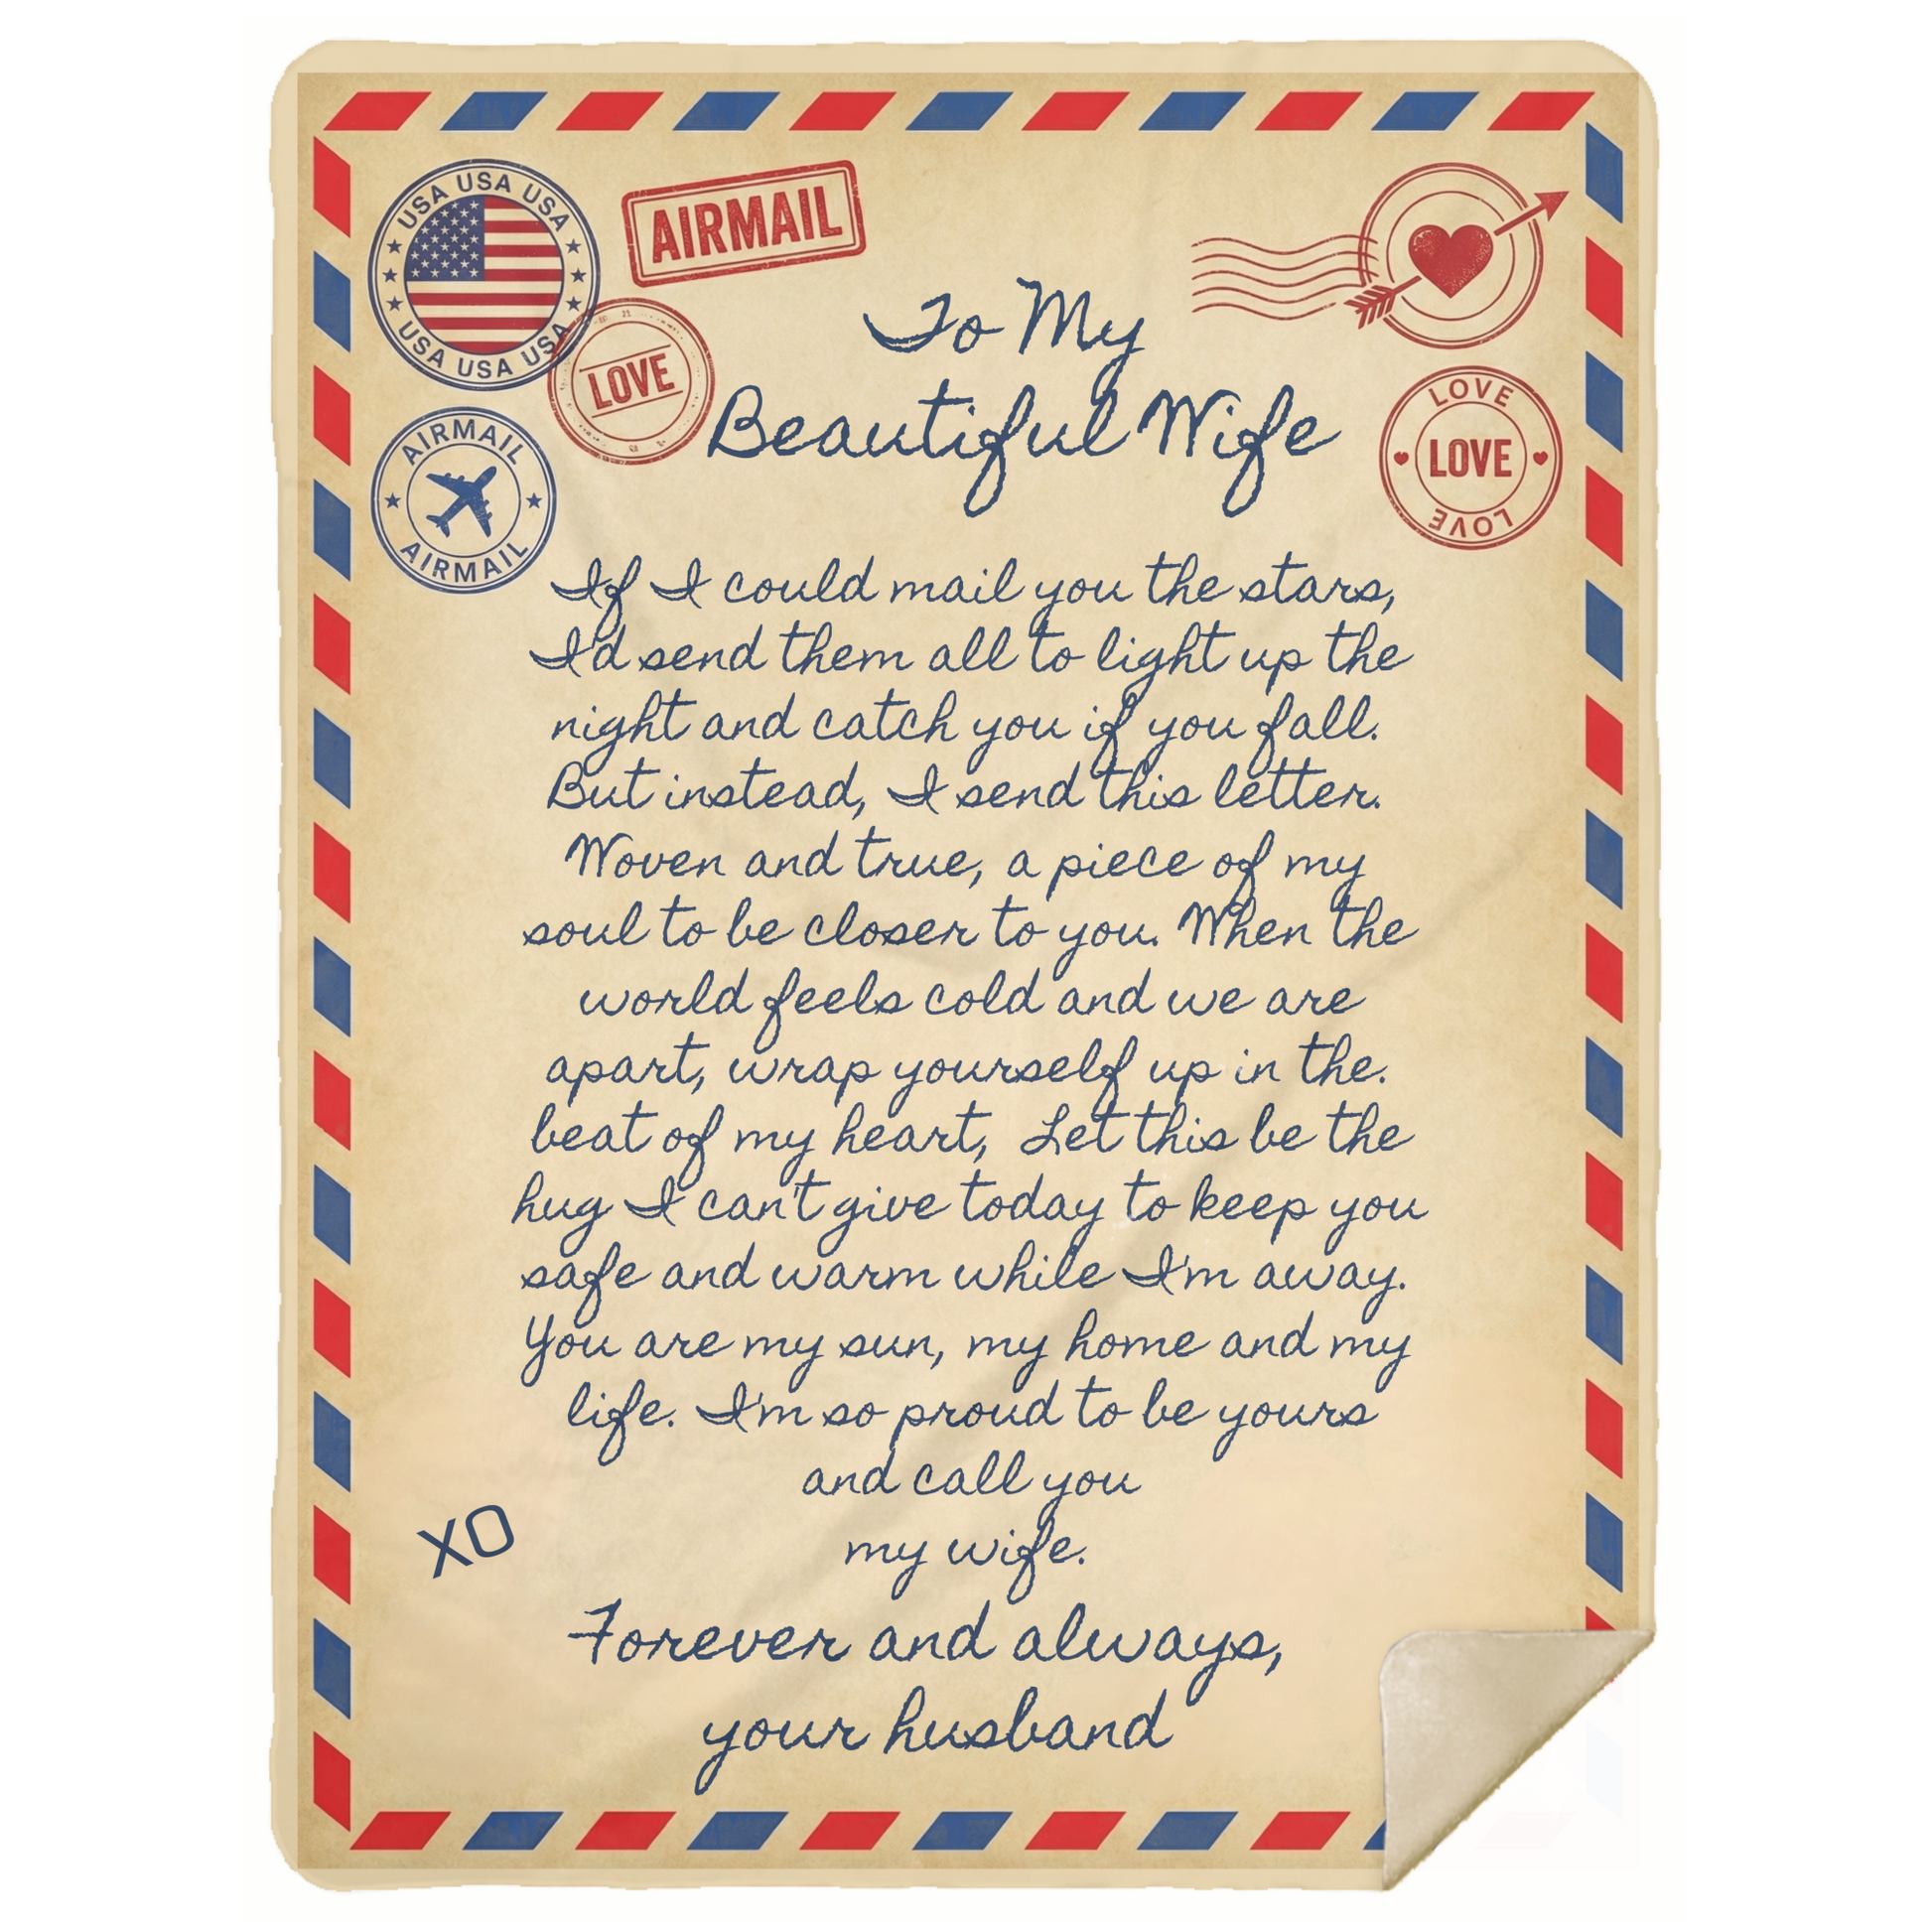 USA USA USA
USA USA USA
AIRMAIL
LOVE
AIRMAIL
AIRMAIL
LOVE
LOVE
LOVE
To My
Beautiful Wife
If I could mail you the stars,
I'd send them all to light up the
night and catch you if you fall.
But instead, I send this letter.
Woven and true, a piece of my
soul to be closer to you. When the
world feels cold and we are
apart, wrap yourself up in the.
beat of my heart, Let this be the
hug I can't give today to keep you
safe and warm while I'm away.
You are my sun, my home and my
life. I'm so proud to be yours
and call you
my wife.
XO
Forever and always,
your husband